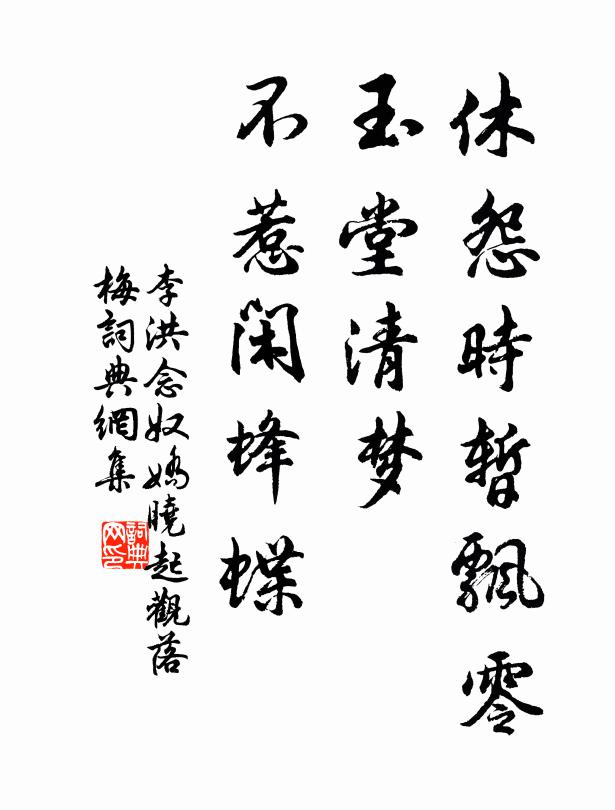 休怨時暫飄零
玉堂清梦
不惹闲蜂蝶
李洪念奴嬌曉起觀落
梅詞典網集
詞典
网印